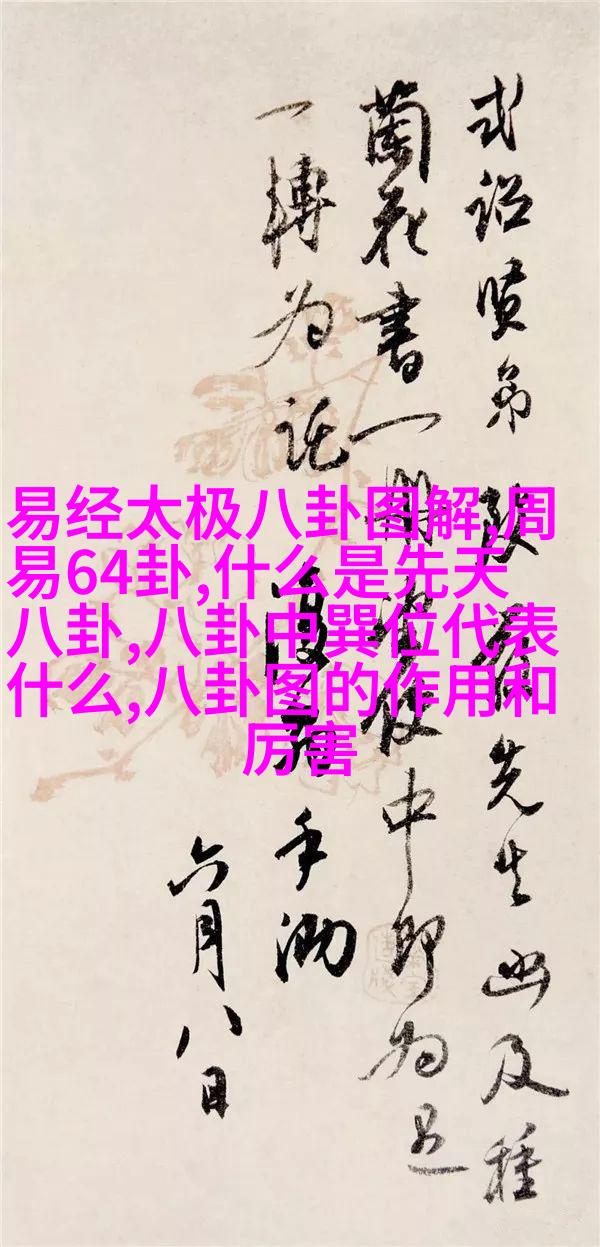 易经太极八卦图解,周
易64卦,什么是先天
八卦,八卦中巽位代表
什么,八卦图的作用和
厉害
贤弟 先生函及種
蘭花書一冊 便中即为
一轉为託
手泐
六月八日